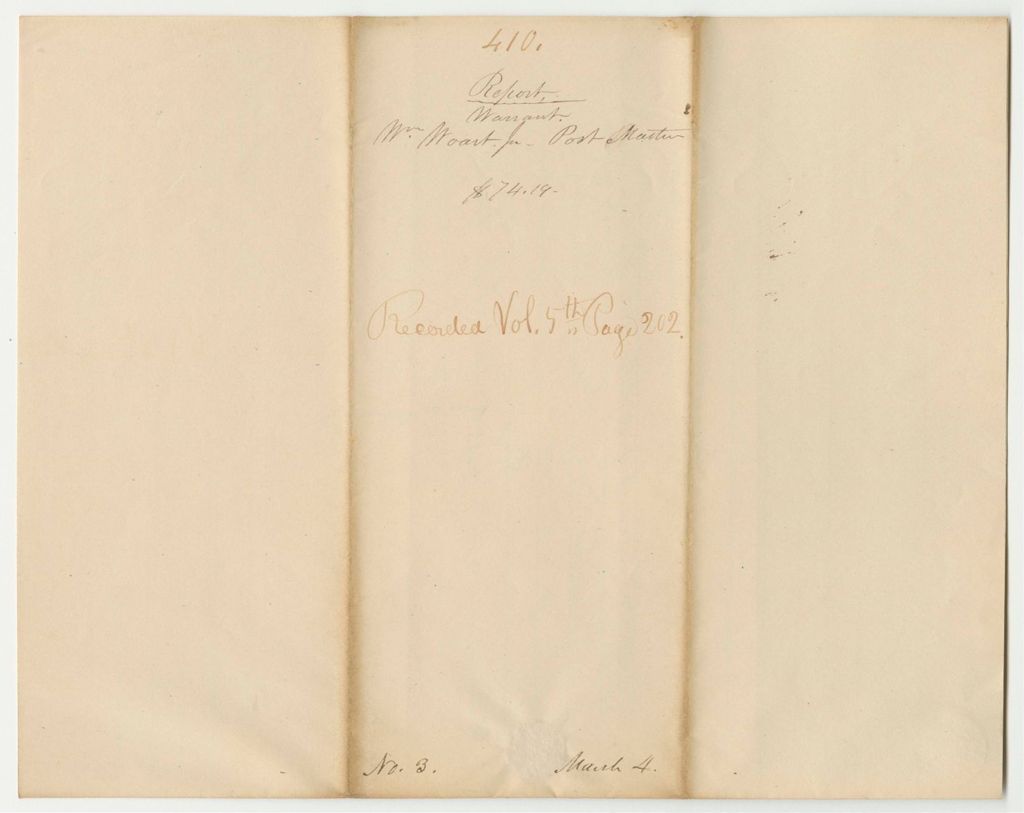 410.
Report,
Warrant.
Wm Woart Jr - Post Master
$74.19-
Recorded Vol. 5th Page 202.
No. 3. March 4.